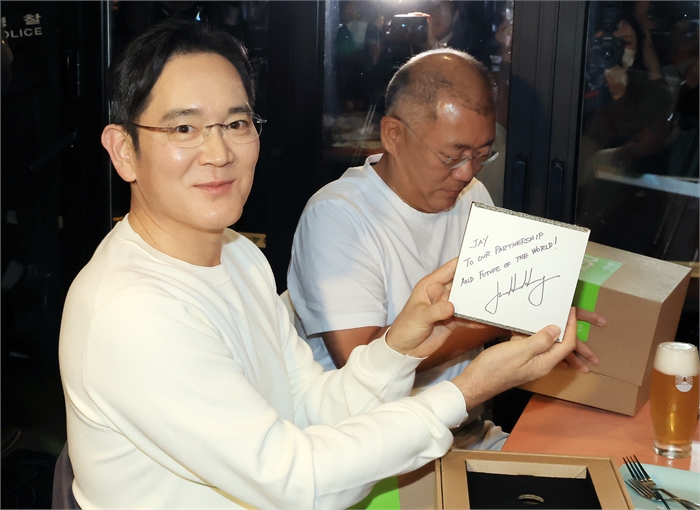 경찰
POLICE
JAY
TO OUR PARTNERSHIP
AND FUTURE OF THE WORLD!